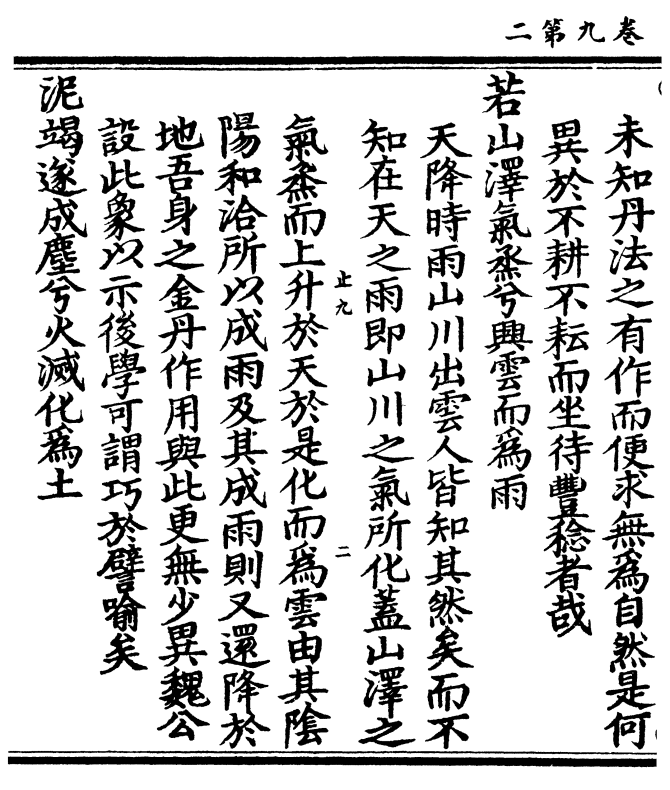 卷九第二
未知丹法之有作而便求無為自然是何
異於不耕不耘而坐待豐稔者哉
若山澤氣烝兮興雲而為雨
天降時雨山川出雲人皆知其然矣而不
知在天之雨即山川之氣所化蓋山澤之
止九
二
氣烝而上升於天於是化而為雲由其陰
陽和洽所以成雨及其成雨則又還降於
地吾身之金丹作用與此更無少異魏公
設此象以示後學可謂巧於譬喻矣
泥竭遂成塵兮火滅化為土